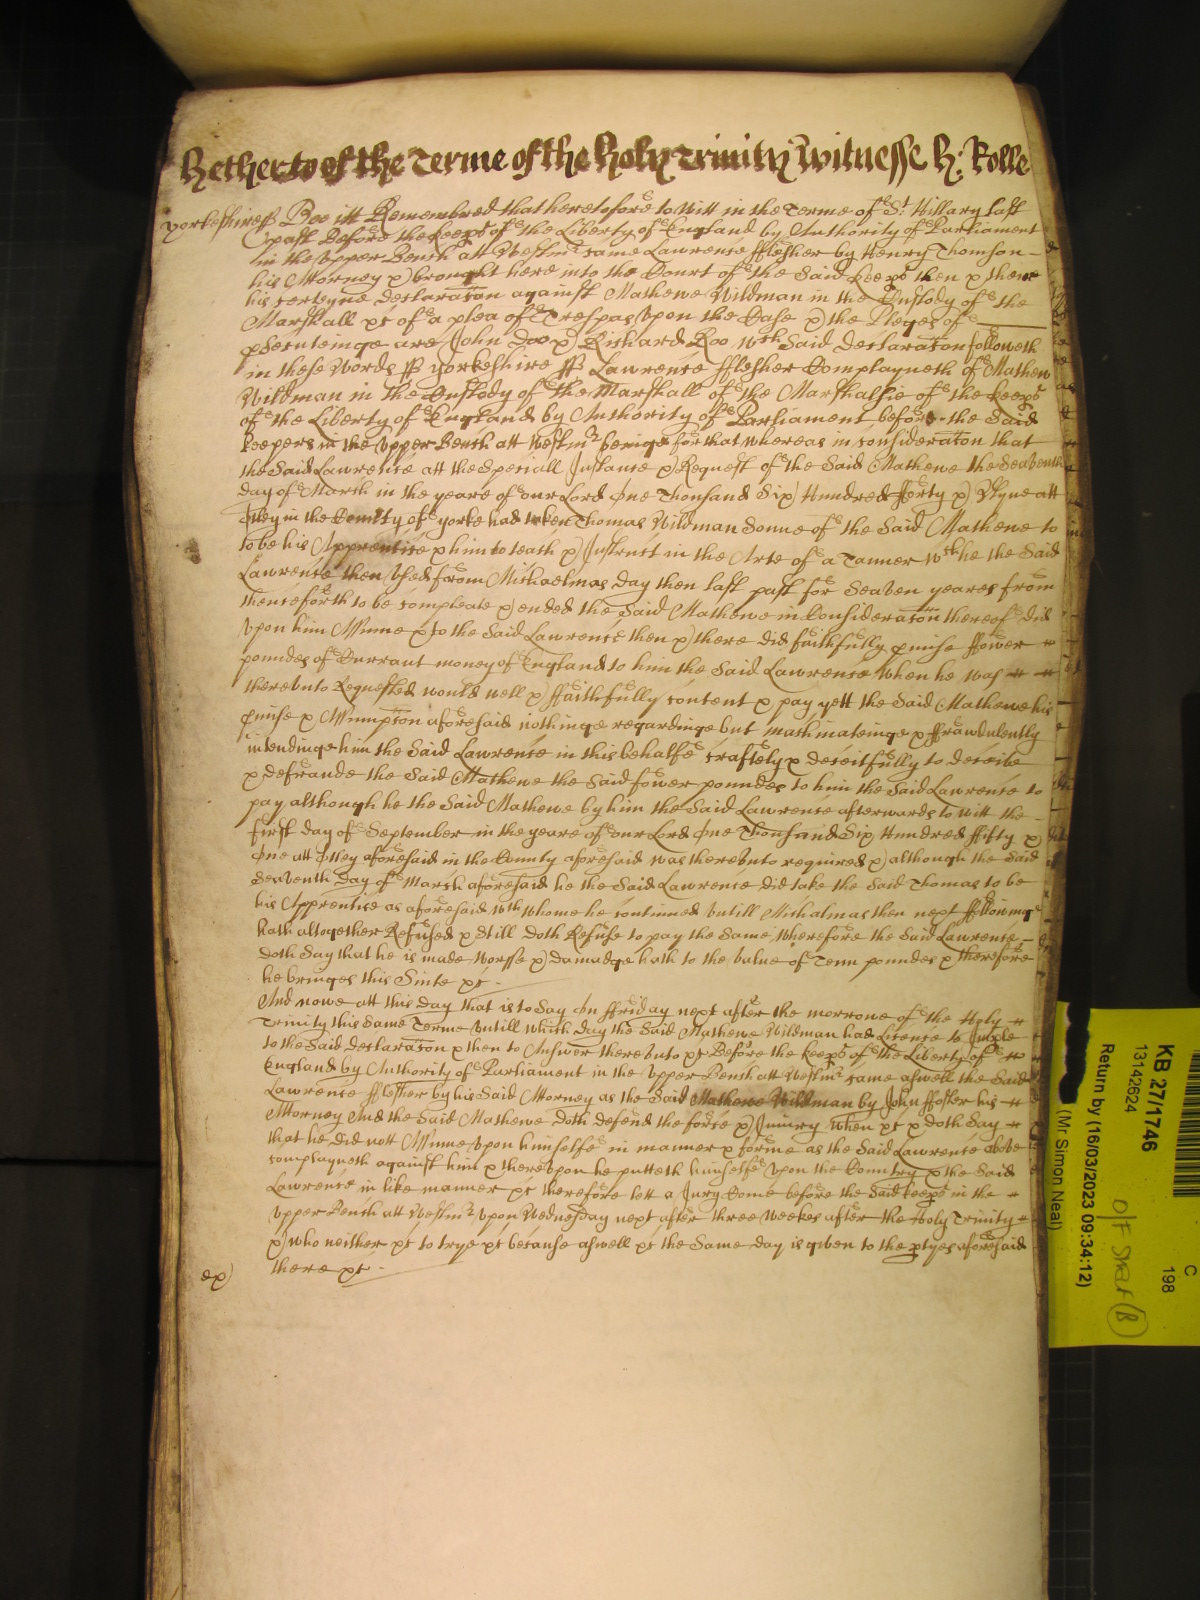 Hetherto of the Terme of the Holy Trinity Witnesse H: Rolle
Yorkeshire ss Bee itt Remembred that heretofore to Witt in the Terme of St Hillary last
past Before the keeps of the Liberty of England by Authority of Parliament
in the Upper Bench att Westmr came Lawrence fflesher by Henry Thomson
his Attorney & brought here into the Court of the Said keeps then & there
his certeyne declaracon against Mathewe Wildman in the Custody of the
Marshall &c of a plea of Trespas upon the Case & the Pleges of
psecuteinge are John Doo & Richard Roo wch Said declaracon followeth
in these Words ss Yorkeshire ss Lawrence fflesher Complayneth of Mathew
Wildman in the Custody of the Marshall of the Marshalsie of the keeps
of the Liberty of England by Authority of Parliament before the Said
keepers in the Upper Bench att Westmr beinge for that whereas in consideraton that
the Said Lawrence att the speciall Instance & Request of the Said Mathewe the Seaventh
day of March in the yeare of our Lord One Thousand Six Hundred fforty & Nyne att
Otley in the County of Yorke had taken Thomas Wildman Sonne of the Said Mathewe to
to be his Apprentice & him to teach & Instruct in the Arte of a Tanner wch he the Said
Lawrence then used from Michaelmas day then last past for Seaven yeares from
thenceforth to be compleate & ended the Said Mathewe in Consideracon thereof did
upon him Assume & to the Said Lawrence then & there did faithfully pmise ffower
poundes of Currant money of England to him the Said Lawrence when he was
thereunto Requested would well & ffaithfully content & pay yett the Said Mathewe his
pmise & Assumpcon aforesaid nothinge regardinge but machinateinge & ffrawdulently
intendinge him the Said Lawrence in this behalfe craftely & deceitfully to deceibe
& defraude the Said Mathewe the Said fower poundes to him the Said Lawrence to
pay although he the Said Mathewe by him the Said Lawrence afterwards to Witt the
first day of September in the yeare of our Lord One Thousand Six Hundred ffifty &
One att Otley aforesaid in the County aforesaid was thereunto required & although the Said
Seaventh day of March aforesaid he the Said Lawrence did take the Said Thomas to be
his Apprentice as aforesaid wth whome he continued untill Michalmas then next ffollowinge
hath altogether Refused & Still doth Refuse to pay the Same Wherefore the Said Lawrence
doth Say that he is made Worsse & damadge hath to the value of Tenn poundes & therefore
he bringes this Suite &c
And nowe att this day that is to Say On ffriday next after the morrowe of the Holy
Trinity this Same Terme untill which day the Said Mathewe Wildman had Licence to Imple
to the Said declaracon & then to Answer thereunto &c Before the keeps of the Liberty of
England by Authority of Parliament in the Upper Bench att Westmr came aswell the Said
Lawrence fflesher by his Said Attorney as the Said Mathewe Wildman by John ffoster his
Attorney And the Said Mathewe doth defend the force & Iniury when &c & doth Say
that he did nott Assume upon himselfe in manner & forme as the Said Lawrence above
complayneth against him & thereupon he putteth himselfe upon the Country & the Said
Lawrence in like manner &c therefore lett a Jury Come before the Said keeps in the
Upper Bench att Westmr upon Wednesday next after three Weekes after the Holy Trinity
& who neither &c to trye &c because aswell &c the Same day is given to the ptyes aforesaid
there &c
KB 27/1746
13142624
Return by (16/03/2023 09:34:12)
(Mr Simon Neal)
C
198
O/F Shelf (B)